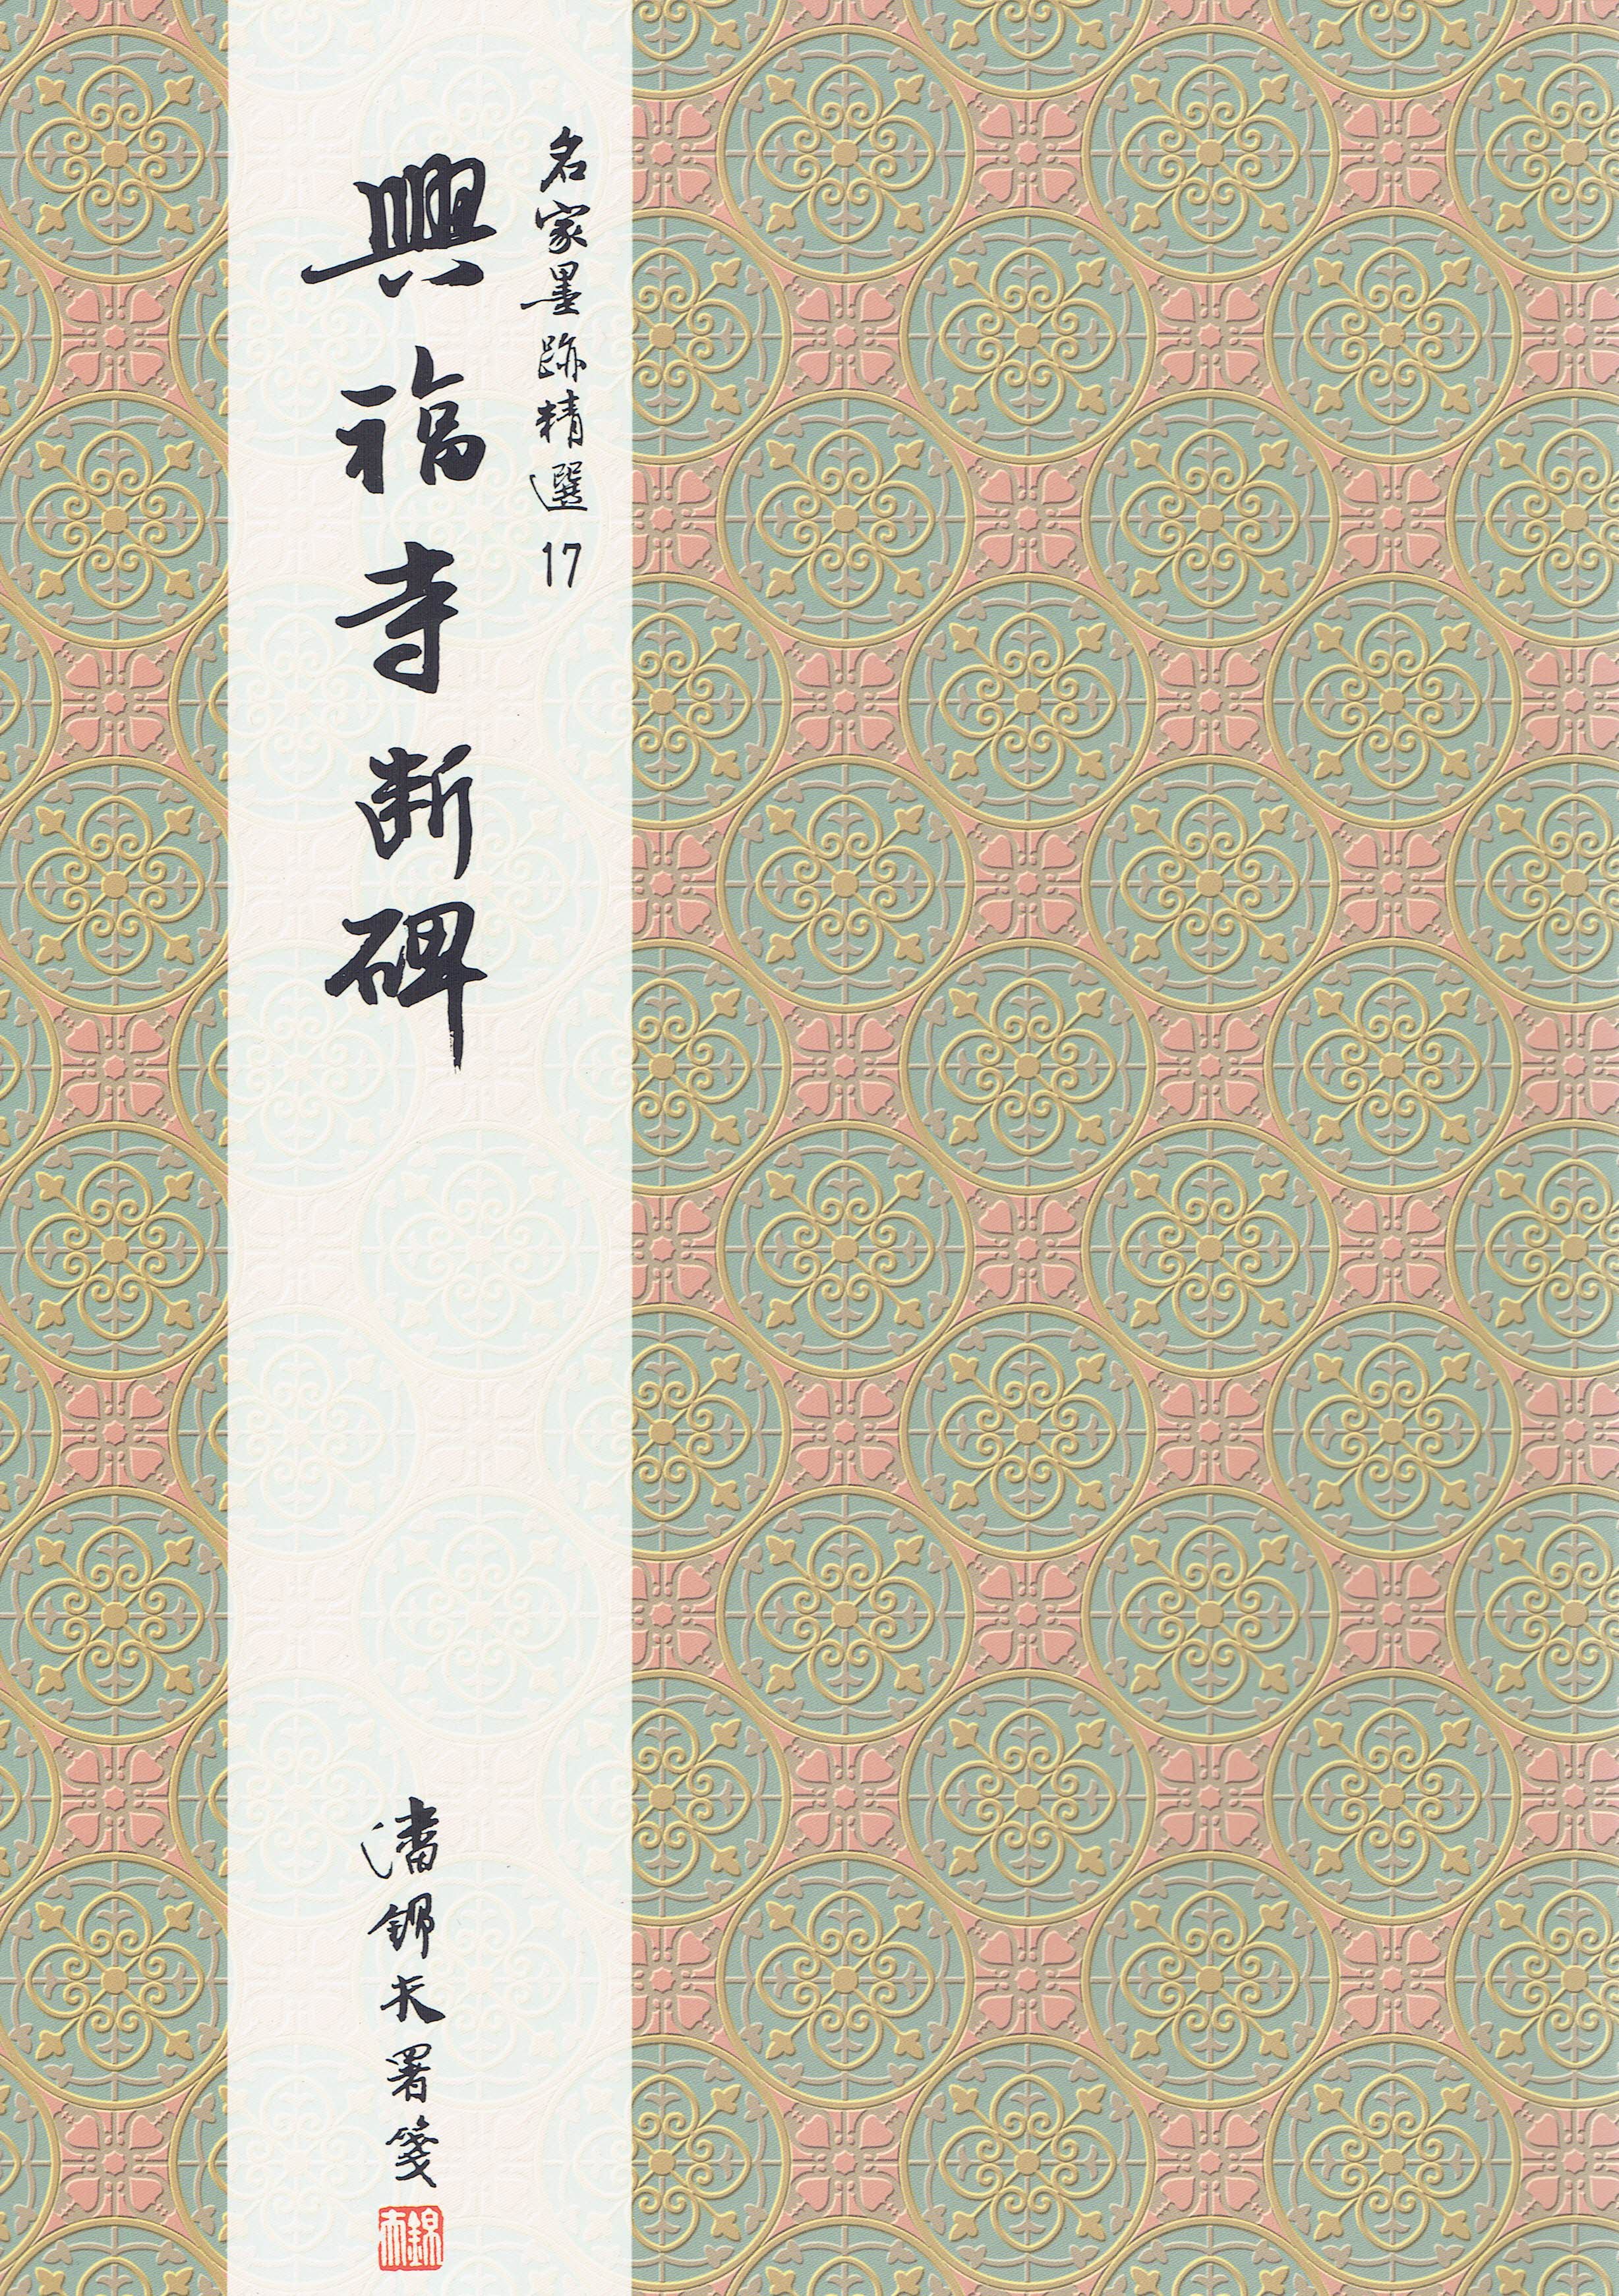 名家墨跡精選 17
興福寺斷碑
潘錦夫署箋
錦夫